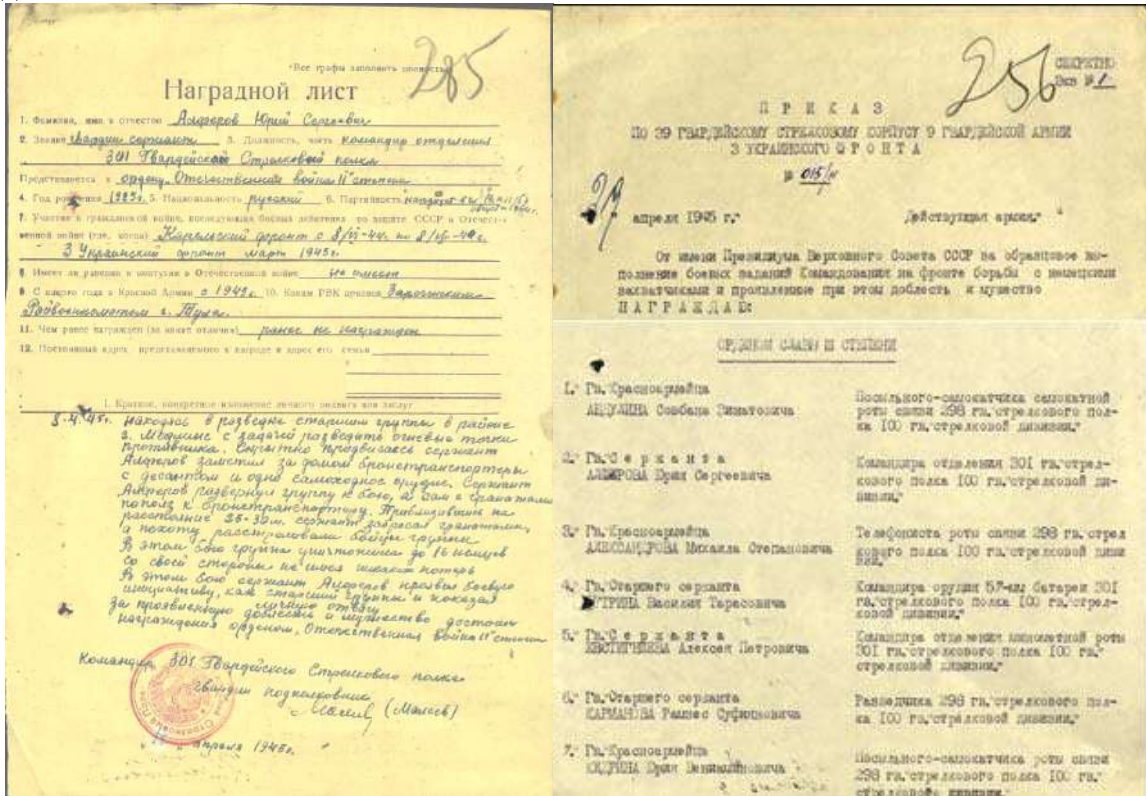 285
"Все графы заполнять полностью"
Наградной лист
1. Фамилия, имя и отчество Алферов Юрий Сергеевич
2. Звание гвардии сержант 3. Должность, часть командир отделения
301 Гвардейского Стрелкового полка
Представляется к ордену Отечественная война II степени
4. Год рождения 1925г. 5. Национальность русский 6. Партийность
7. Участие в гражданской войне, последующих боевых действиях по защите СССР и Отечест-
венной войне (где, когда) Карельский фронт с
3 Украинский фронт март 1945г.
8. Имеет ли ранения и контузии в Отечественной войне не имеет
9. С какого года в Красной Армии с 1943г. 10. Каким РВК призван Зареченским
Райвоенкоматом г. Тула.
11. Чем ранее награжден (за какие отличия) ранее не награжден
12. Постоянный адрес представляемого к награде и адрес его семьи
I. Краткое, конкретное изложение личного подвига или заслуг
5.4.45г. находясь в разведке старшим группы в районе
с задачей разведать огневые точки
противника. Скрытно продвигаясь сержант
Алферов заметил за домом бронетранспортеры
с десантом и одно самоходное орудие. Сержант
Алферов развернул группу к бою, а сам с гранатами
пополз к бронетранспортеру. Приблизившись на
расстояние 25-30 м. сержант забросал гранатами,
а пехоту расстреливали бойцы группы
В этом бою группа уничтожила до 16 немцев
со своей стороны не имея потерь
В этом бою сержант Алферов проявил боевую
инициативу, как старший группы и показал
личную отвагу
за проявленную доблесть и мужество достоин
награждения орденом, Отечественная война II степени
Командир 301 Гвардейского Стрелкового полка
гвардии подполковник
(Малеев)
апреля 1945г.
256
СЕКРЕТНО
Экз № 1
ПРИКАЗ
ПО 39 ГВАРДЕЙСКОМУ СТРЕЛКОВОМУ КОРПУСУ 9 ГВАРДЕЙСКОЙ АРМИИ
3 УКРАИНСКОГО ФРОНТА
№ 015/н
27 апреля 1945 г. Действующая армия.
От имени Президиума Верховного Совета СССР за образцовое вы-
полнение боевых заданий Командования на фронте борьбы с немецкими
захватчиками и проявленное при этом доблесть и мужество
НАГРАЖДАЮ:
ОРДЕНОМ СЛАВЫ III СТЕПЕНИ
1. Гв. Красноармейца Посыльного-самокатчика самокатной
роты связи 298 гв. стрелкового пол-
ка 100 гв. стрелковой дивизии.
2. Гв. Сержанта Командира отделения 301 гв. стрел-
АЛФЕРОВА Юрия Сергеевича кового полка 100 гв. стрелковой ди-
визии.
3. Гв. Красноармейца Телефониста роты связи 298 гв. стрел
АЛЕКСАНДРОВА Михаила Степановича кового полка 100 гв. стрелковой диви
зии.
4. Гв. Старшего сержанта Командира орудия 57-мм батареи 301
Василия Тарасовича гв. стрелкового полка 100 гв. стрел-
ковой дивизии.
5. Гв. Сержанта Командира отделения минометной роты
ЕВСТИГНЕЕВА Алексея Петровича 301 гв. стрелкового полка 100 гв.
стрелковой дивизии.
6. Гв. Старшего сержанта Разведчика 298 гв. стрелкового пол-
КАРМАНОВА ка 100 гв. стрелковой дивизии.
7. Гв. Красноармейца Посыльного-самокатчика роты связи
Юрия Вениаминовича 298 гв. стрелкового полка 100 гв.
стрелковой дивизии.